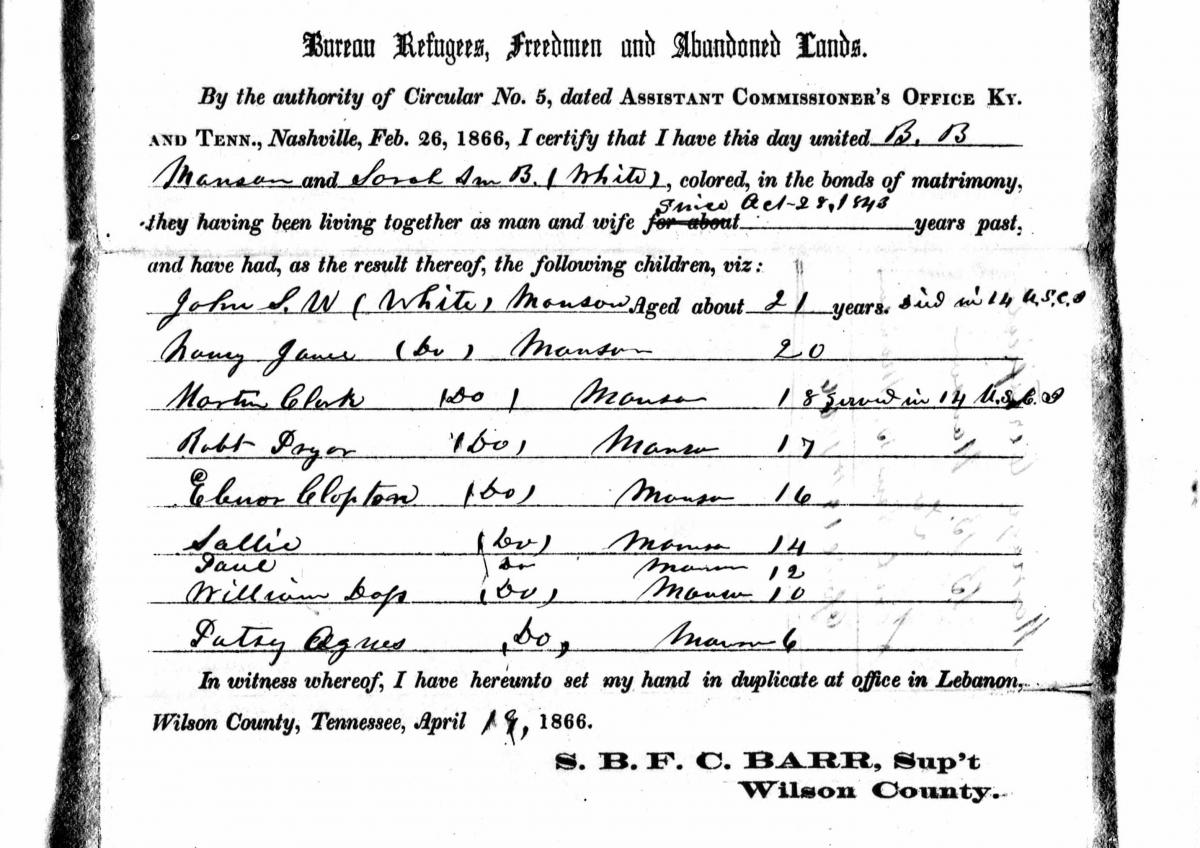 Bureau Refugees, Freedmen and Abandoned Lands.
By the authority of Circular No. 5, dated ASSISTANT COMMISSIONER'S OFFICE KY.
AND TENN., Nashville, Feb. 26, 1866, I certify that I have this day united B. B
Manson and Sarah Ann B. (White), colored, in the bonds of matrimony,
Since Oct-28, 1843
they having been living together as man and wife for about years past,
and have had, as the result thereof, the following children, viz:
John S. W (White) Manson Aged about 21 years. Died in 14 U.S.C.I
Nancy Jane (Do) Manson 20
Martin Clark (Do) Manson 18 Served in 14 U.S.C.I
Robt Pryor (Do) Manson 17
Elenor Clopton (Do) Manson 16
Sallie (Do) Manson 14
Paul (Do Manson 12
William Doss (Do) Manson 10
Patsy Agnes (Do) Manson 6
In witness whereof, I have hereunto set my hand in duplicate at office in Lebanon,
Wilson County, Tennessee, April 19, 1866.
S. B. F. C. BARR, Sup't
Wilson County.